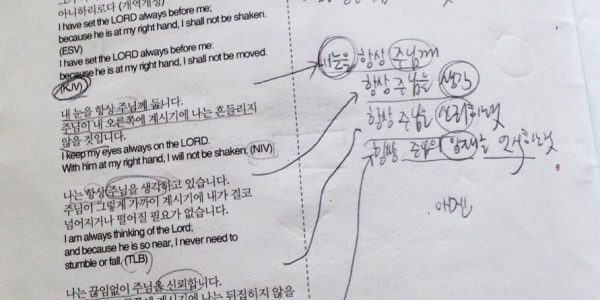 아니하리로다 (개역개정)
I have set the LORD always before me:
because he is at my right hand, I shall not be shaken.
(ESV)
I have set the LORD always before me:
because he is at my right hand, I shall not be moved.
(KJV)
내 눈을 항상 주님께 둡니다.
주님이 내 오른쪽에 계시기에 나는 흔들리지
않을 것입니다.
I keep my eyes always on the LORD.
With him at my right hand, I will not be shaken. (NIV)
나는 항상 주님을 생각하고 있습니다.
주님이 그렇게 가까이 계시기에 내가 결코
넘어지거나 떨어질 필요가 없습니다.
I am always thinking of the Lord;
and because he is so near, I never need to
stumble or fall. (TLB)
나는 끊임없이 주님을 신뢰합니다.
계시기에 나는 뒤집히지 않을
내눈을 항상 주님께
항상 주님을 생각
항상 주님을
항상 주님의 임재를
아멘